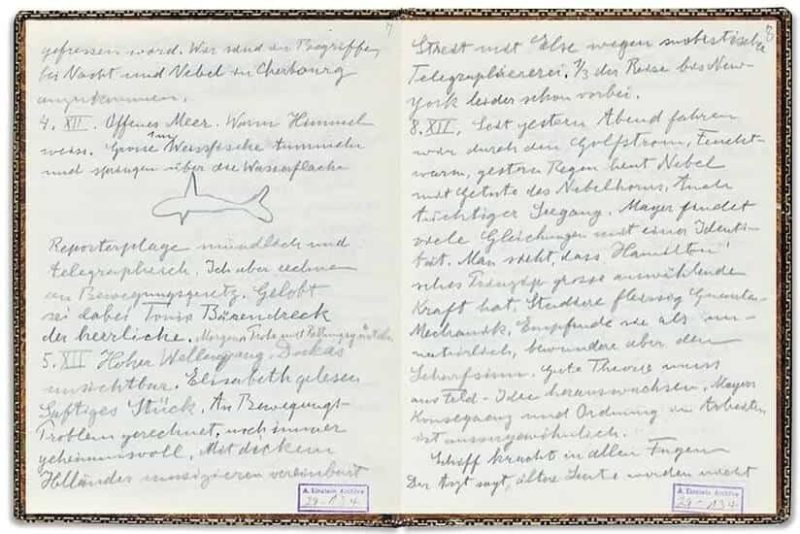 gefressen ward. Wir sind im Begriffe,
bei Nacht und Nebel in Cherbourg
anzukommen.
4. XII. Offenes Meer. Warm Himmel
weiss. Grosse Weissfische tummeln
und springen über die Wasserfläche
Reporterplage mündlich und
telegraphisch. Ich aber rechnen
an Bewegungsgesetz. Gelobt
sei dabei Tonis Bärendreck
der herrliche.
5. XII Hoher Wellengang. Dukas
unsichtbar. Elisabeth gelesen
Saftiges Stück. An Bewegungs-
Problem gerechnet, noch immer
geheimnisvoll. Mit dickem
Holländer musizieren vereinbart
A. Einstein Archive
29-134
7
8
Streit mit Else wegen
Telegraphiererei. 1/3 der Reise bis New-
York leider schon vorbei.
8. XII. Seit gestern Abend fahren
wir durch den Golfstrom, Feucht-
warm, gestern Regen heut Nebel
mit Getute des Nebelhorns. Auch
tüchtiger Seegang. Mayer findet
viele Gleichungen mit einer Identi-
tät. Man sieht, dass Hamilton'
sches Prinzip grosse auswählende
Kraft hat. Studiere fleissig Quanten-
Mechanik. Empfinde sie als un-
natürlich, bewundere aber den
Scharfsinn. Gute Theorie muss
aus Feld-Idee herauswachsen. Mayers
Konsequenz und Ordnung im Arbeiten
ist aussergewöhnlich.
Schiff kracht in allen Fugen
Der Arzt sagt, ältere Leute werden nicht
A. Einstein Archive
29-134